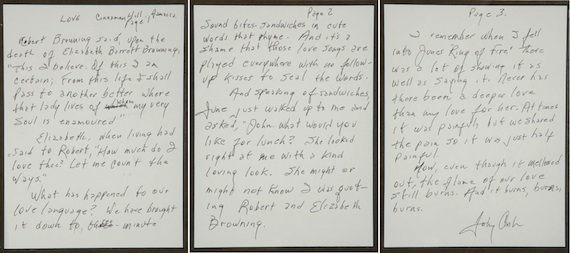 Love Cinnamon Hill, Jamaica
Page 1
Robert Browning said, upon the
death of Elizabeth Barrett Browning,
"This I believe. Of this I am
certain; From this life I shall
pass to another better where
that lady lives of whom my very
Soul is enamoured"
Elizabeth, when living had
said to Robert, "How much do I
love thee? Let me count the
ways."
What has happened to our
love language? We have brought
it down to, minute
Page 2
Sound bites. Sandwiches in cute
words that rhyme. And it's a
shame that those love songs are
played everywhere with no follow-
up kisses to seal the words.
And speaking of sandwiches,
June just walked up to me and
asked, "John. what would you
like for lunch? She looked
right at me with a kind
loving look. She might or
might not know I was quot-
ing Robert and Elizabeth
Browning.
Page 3.
I remember when I fell
into June's Ring of Fire. There
was a lot of showing it as
well as saying it. Never has
there been a deeper love
than my love for her. At times
it was painful, but we shared
the pain so it was just half
painful.
Now, even though it mellowed
out, the flame of our love
still burns. And it burns, burns,
burns.
John Cash